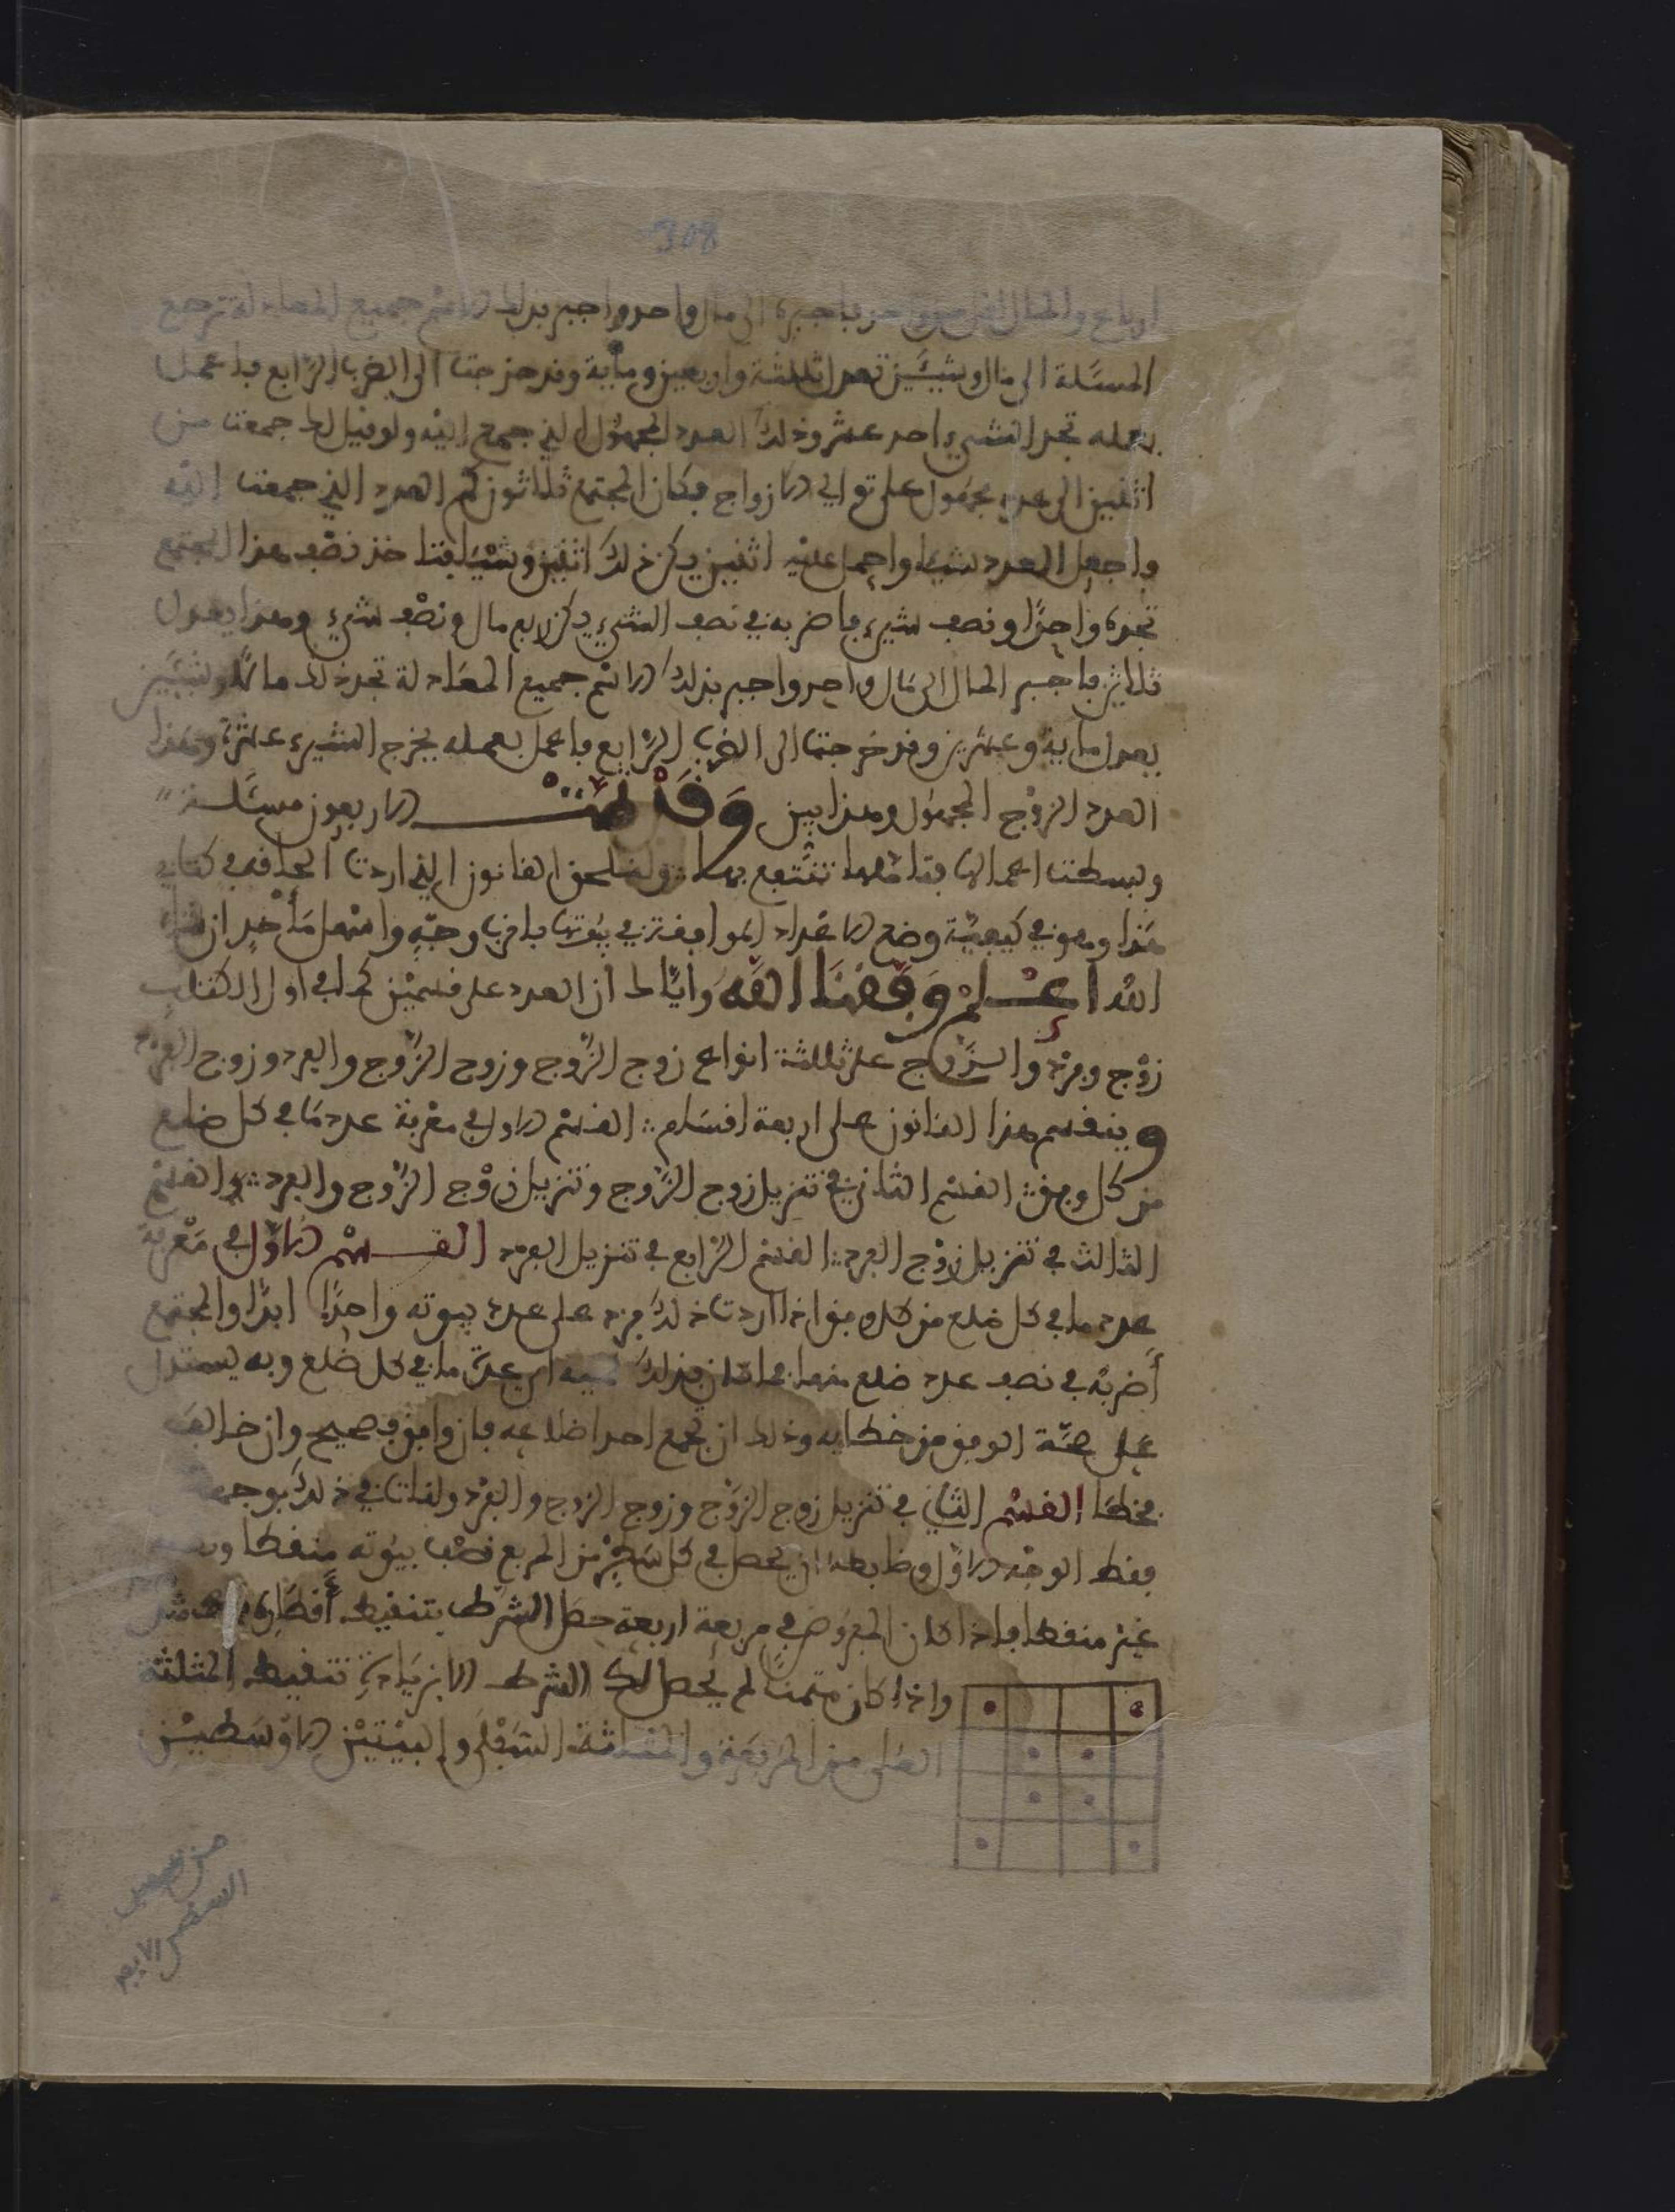 308
المسئلة الى مال وشيئين تعدل ثلاثة واربعين ومائة وقد خرجت الى الضرب الرابع فاعمل
بعمله تجد الشيء احد عشر وذلك العدد المجهول الذي جمع اليه ولو قيل لك جمعت من
اثنين الى عدد مجهول على توالي الازواج فكان المجتمع ثلاثون كم العدد الذي جمعت اليه
فاجعل العدد شيئا واحمل عليه اثنين يكن ذلك اثنين وشيئا خذ نصف هذا المجتمع
تجده واحدًا ونصف شيء فاضربه في نصف الشيء يكن ربع مال ونصف شيء وهذا يعدل
ثلاثين فاجبر المال الى مال واحد واجبر بذلك الاسم جميع المعادلة تجد ذلك مالًا وشيئين
يعدل مائة وعشرين وقد خرجت الى الضرب الرابع فاعمل بعمله يخرج الشيء عشرة وهذا
العدد الزوج المجهول وهذا بين وَقَدْ تمت الاربعون مسئلة
وبسطت اعمالها فتاملها تنتفع بها ولنلحق القانون الذي اردت الحاقه في كتابي
هذا وهو في كيفية وضع الاعداد الموافقة في بيوتها باقرب وجه واسهل مأخذ ان شاء
الله اعلم وَفَّقنَا الله وايّاك ان العدد على قسمين كما في اول الكتاب
زوْج وفرْد والزوج على ثلثة انواع زوج الزّوج وزوج الزّوج والفرد وزوج الفرْد
وينقسم هذا القانون على اربعة اقسام القسْم الاول في معْرفة عدد مَا في كل ضلع
من كل وفق القسْم الثاني في تنزيل زوج الزّوج وتنزيل زوْج الزّوج والفرد والقسْم
الثالث في تنزيل زوْج الفرد القسْم الرّابع في تنزيل الفرد القسْم الاوّل في مَعْرفة
عدد ما في كل ضلع من كل وفق اذا اردت ذلك فزد على عدد بيوته واحدًا ابدًا والمجتمع
أضربْه في نصف عدد ضلع منها فما كان فذلك عدد ما في كل ضلع وبه يستدل
على صحّة الوفق من خطايه وذلك ان تجمع احد اضلاعه فان وافق فصحيح وان خالف
فخطا القسْم الثاني في تنزيل زوج الزّوج وزوج الزوج والفرْد ولنات في ذلك بوجه
فقط الوجْه الاوّل وضابطه ان يحصل في كل سَطْر من المربع نصْف بيوته منقطا ونصفه
غيْر منقط فاذا كان المفروض في مربعة اربعة حصَل الشرط بتنقيط أقطاره
واذا كان مثمنًا لم يحصل لك الشرط الا بزيَادة تنقيط المثلثة
العليا من المربعة والمثلثة السّفْلى والبيْتيْن الاوْسَطيْن